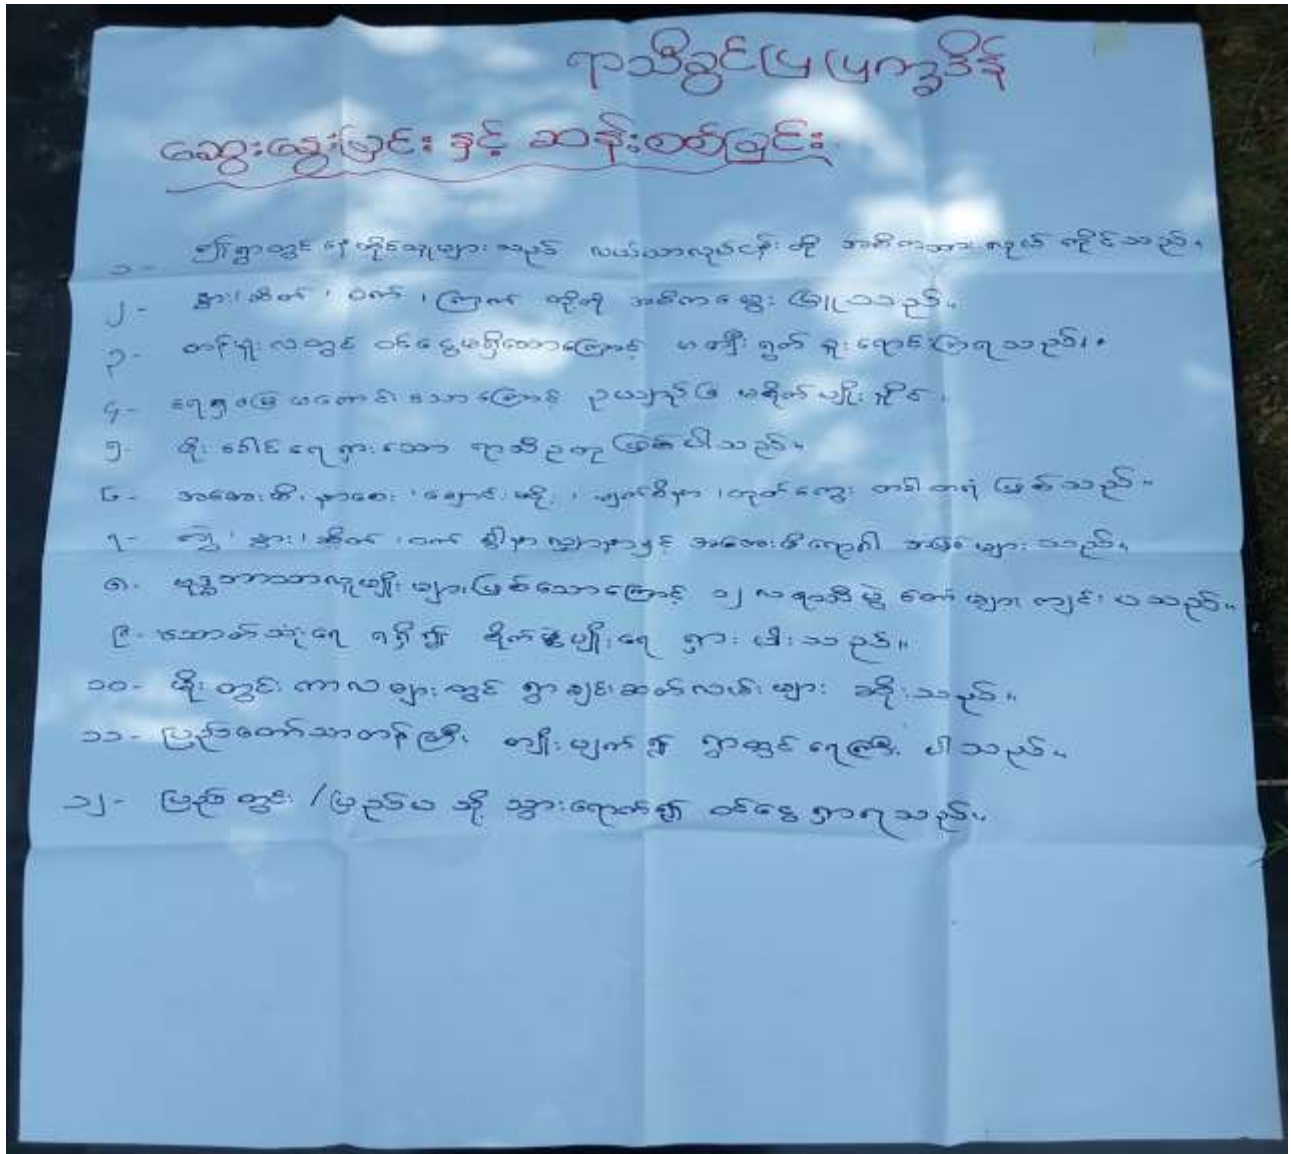 ရာသီခွင်ပြပြက္ခဒိန်
ဆွေးနွေးခြင်း နှင့် ဆန်းစစ်ခြင်း
၁- ဤရွာတွင် နေထိုင်သူများသည် လယ်ယာလုပ်ငန်း ကို အဓိကထား လုပ်ကိုင်သည်။
၂- နွား၊ ဆိတ်၊ ဝက်၊ ကြက် တို့ကို အဓိကမွေး မြူသည်။
၃- တန်ခူးလတွင် ဝင်ငွေမရှိသောကြောင့် ရွက် ခူးရောင်းကြရသည်။
၄- မြေ မကောင်းသောကြောင့် ဥယျာဉ်ခြံ မစိုက်ပျိုးနိုင်
၅- မိုးခေါင်ရေရှားသော ရာသီဥတု ဖြစ်ပါသည်။
၆- အအေးမိ၊ နှာစေး၊ ချောင်းဆိုး၊ မျက်စိနာ၊ တုတ်ကွေး ဖြစ်သည်။
၇- ကျွဲ၊ နွား၊ ဆိတ်၊ ဝက် လျှာနာနှင့် အအေးမိရောဂါ အဖြစ်များသည်။
၈- ဗုဒ္ဓဘာသာလူမျိုးများဖြစ်သောကြောင့် ၁၂ လရာသီပွဲတော်များ ကျင်းပသည်။
၉- သောက်သုံးရေ ရရှိ၍ စိုက်ပျိုးရေ ရှားပါးသည်။
၁၀- မိုးတွင်းကာလများတွင် ရွာချင်းဆက်လမ်းများ ဆိုးသည်။
၁၁- ကျိုးပျက်၍ ရွာတွင် ရေကြီးပါသည်။
၁၂- ပြည်တွင်း / ပြည်ပ သို့ သွားရောက်၍ ဝင်ငွေရှာရသည်။